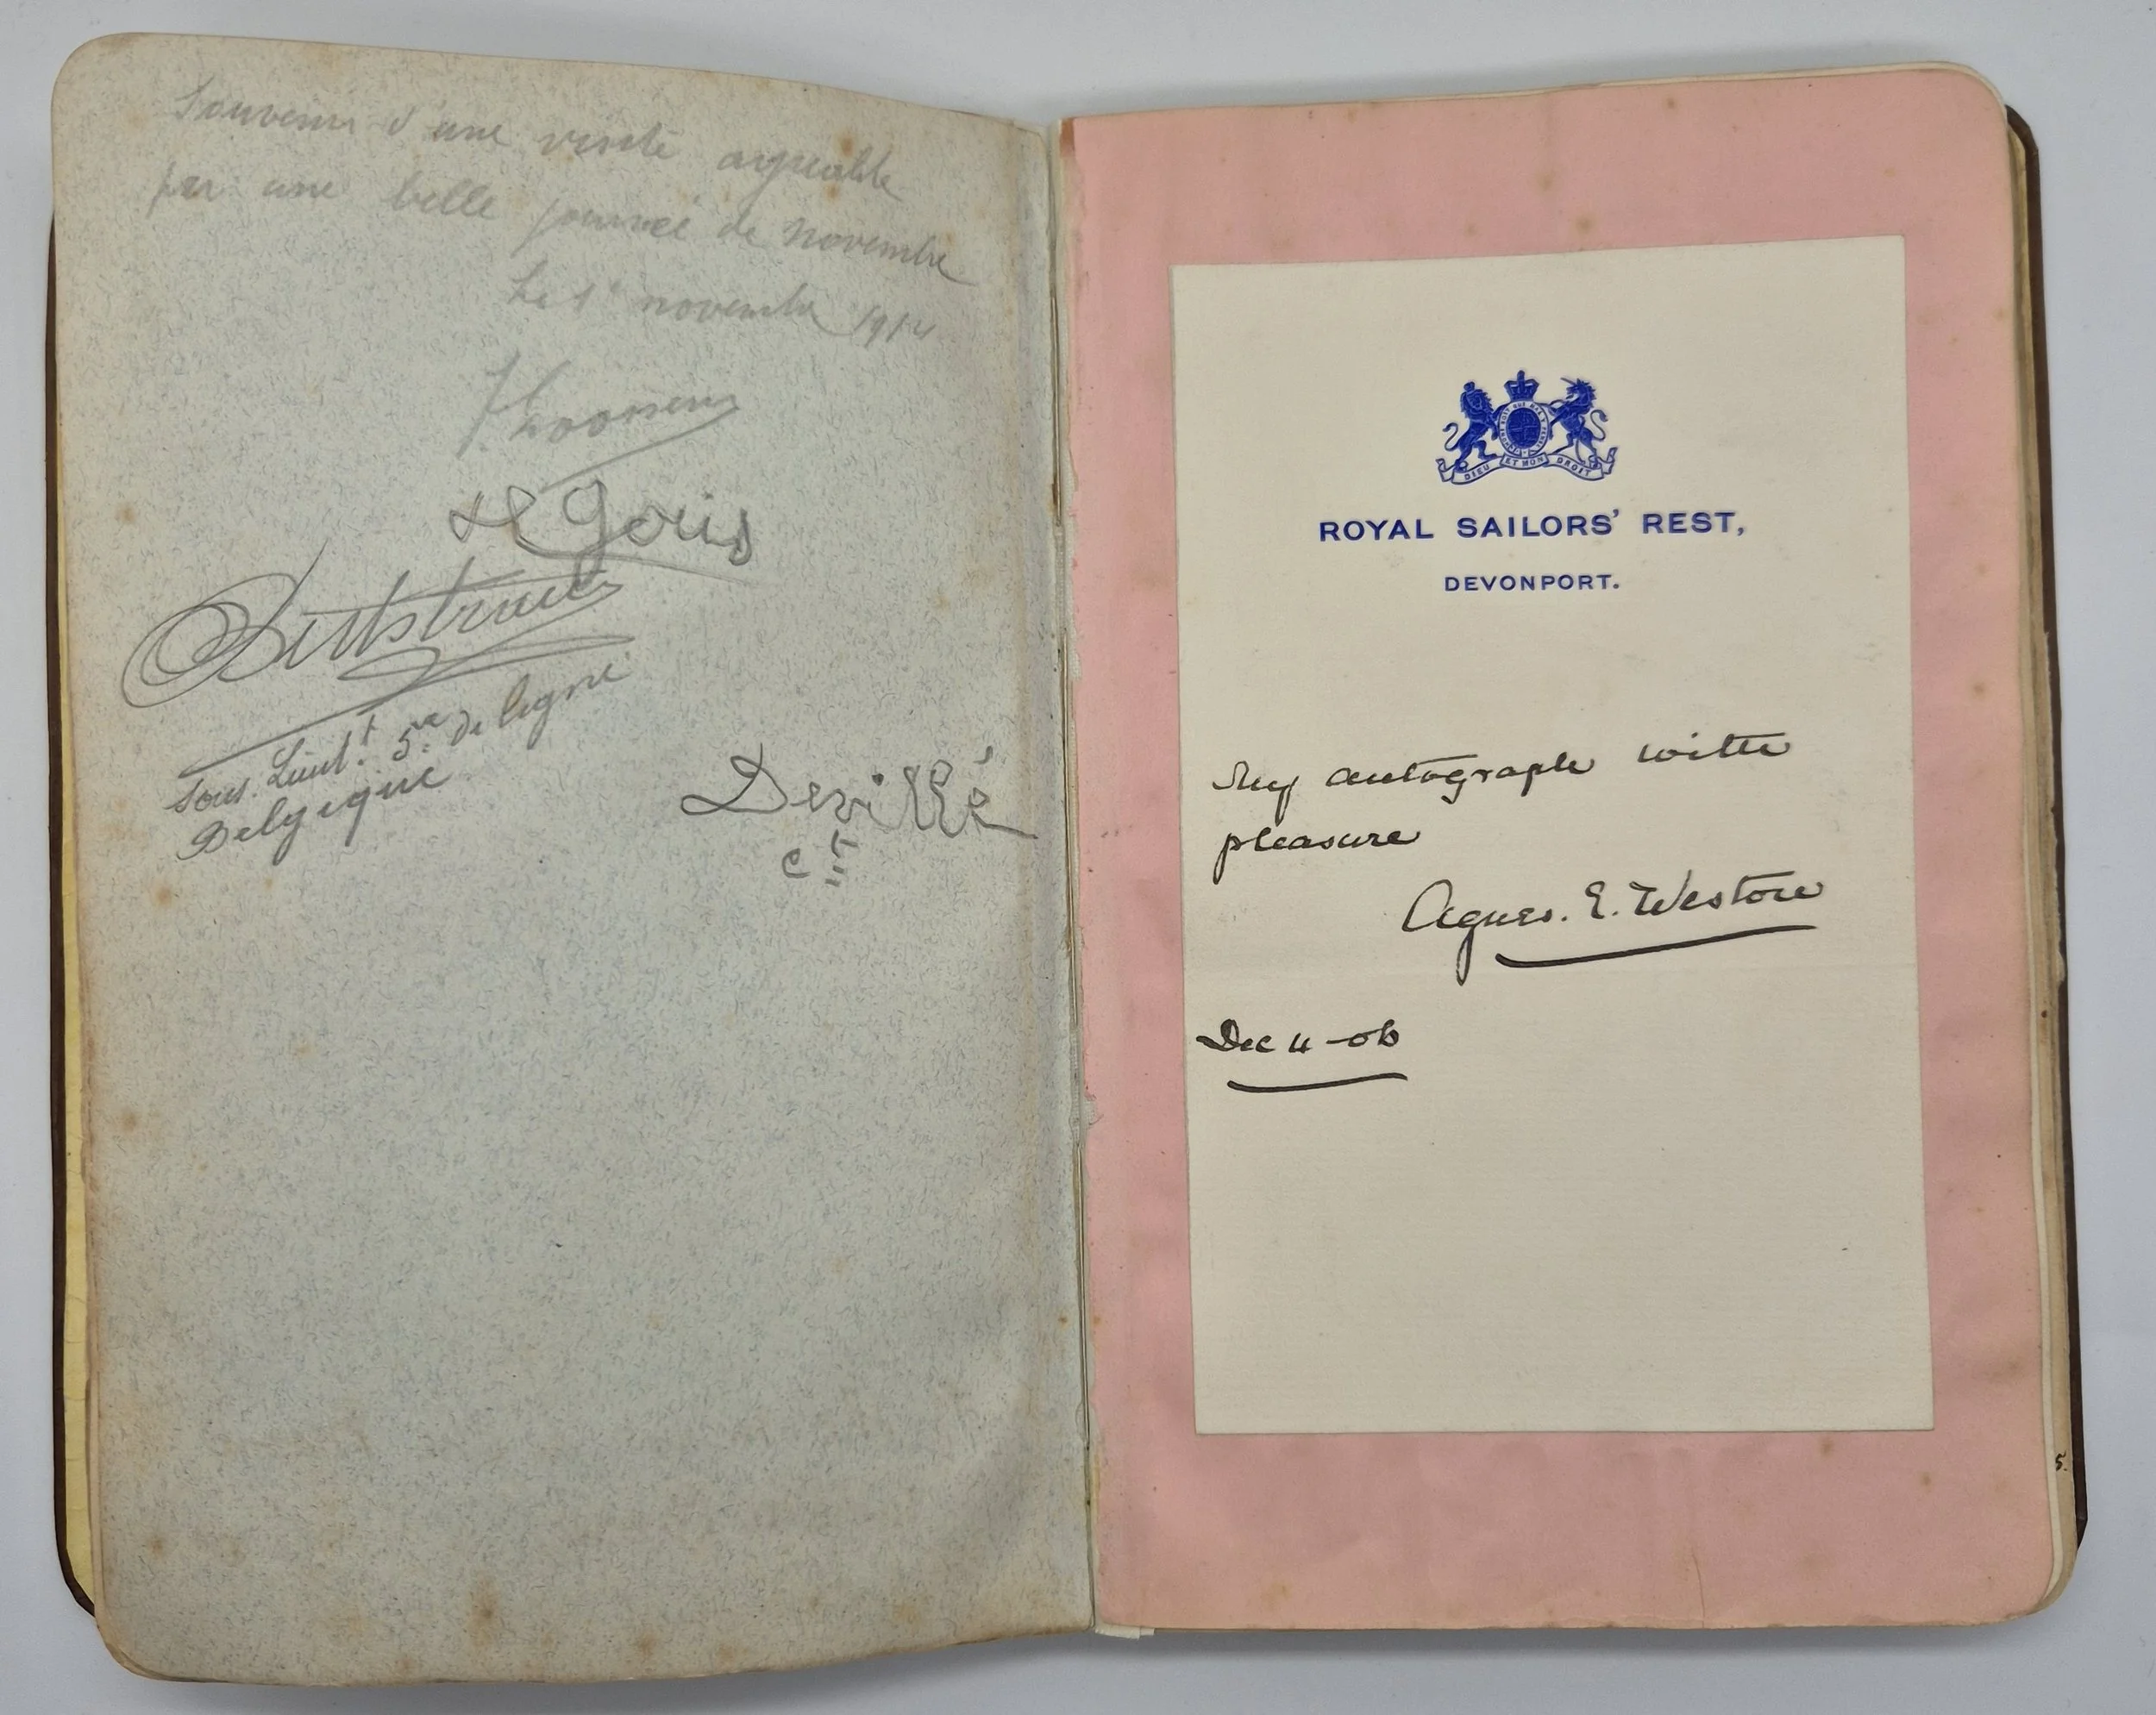 Souvenir d'une visite agreable
par une belle journée de Novembre
Le 1r novembre 1914
Goris
Sous. Lieut.t 5me de ligne
Belgique
Devillé
CT
DIEU ET MON DROIT
ROYAL SAILORS' REST,
DEVONPORT.
My autograph with
pleasure
Agnes. E. Weston
Dec 11-06
5.